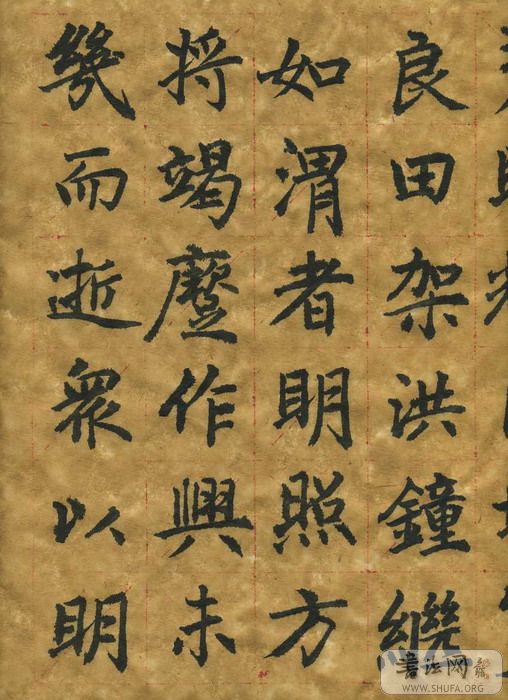 良田架洪鐘繼
如渭者明照方
将竭蹷作興未
㡬而逝衆以明
书法网
WWW.SHUFA.ORG